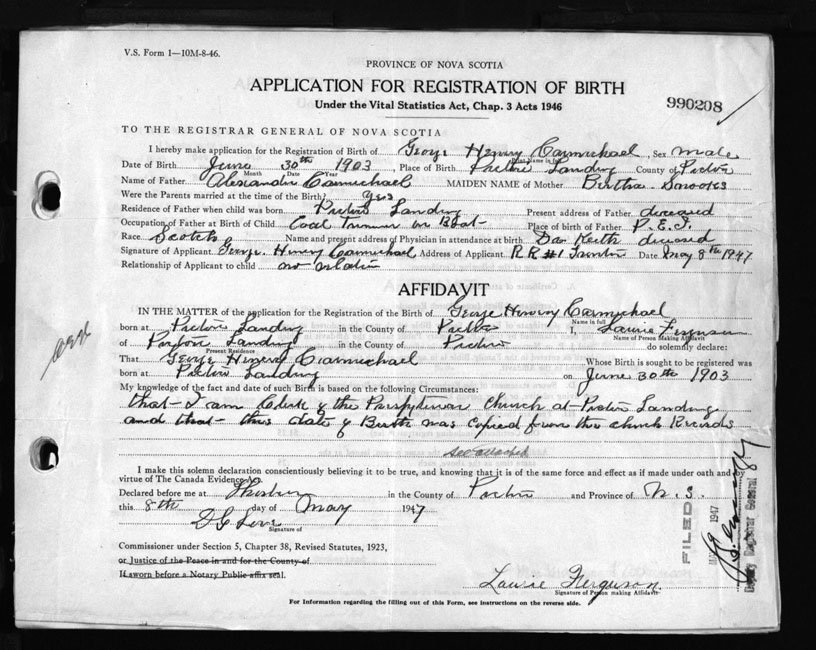 V.S. Form 1—10M-8-46.
PROVINCE OF NOVA SCOTIA
APPLICATION FOR REGISTRATION OF BIRTH
Under the Vital Statistics Act, Chap. 3 Acts 1946
990208
TO THE REGISTRAR GENERAL OF NOVA SCOTIA
I hereby make application for the Registration of Birth of George Henry Carmichael, Sex male
Print Name in full
Date of Birth June 30th 1903, Place of Birth Pictou Landing County of Pictou
Month Date Year
Name of Father Alexander Carmichael MAIDEN NAME of Mother Bertha
Were the Parents married at the time of the Birth? yes
Residence of Father when child was born Pictou Landing Present address of Father deceased
Occupation of Father at Birth of Child Coal Trimmer on Boat Place of birth of Father P.E.I.
Race Scotch Name and present address of Physician in attendance at birth Dr Keith deceased
Signature of Applicant George Henry Carmichael Address of Applicant R R #1 Trenton Date May 8th 1947
Relationship of Applicant to child no relation
AFFIDAVIT
IN THE MATTER of the application for the Registration of the Birth of George Henry Carmichael
Name in full
born at Pictou Landing in the County of Pictou I, Laurie Ferguson
Name of Person Making Affidavit
of Pictou Landing in the County of Pictou do solemnly declare:
Present Residence
That George Henry Carmichael Whose Birth is sought to be registered was
born at Pictou Landing on June 30th 1903
My knowledge of the fact and date of such Birth is based on the following Circumstances:
that I am Clerk of the Presbyterian Church at Pictou Landing
and that this date of Birth was copied from the church Records
see attached
I make this solemn declaration conscientiously believing it to be true, and knowing that it is of the same force and effect as if made under oath and by
virtue of The Canada Evidence Act.
Declared before me at in the County of Pictou and Province of N.S.
this 8th day of May 1947
Signature of
Commissioner under Section 5, Chapter 38, Revised Statutes, 1923,
or Justice of the Peace in and for the County of
If sworn before a Notary Public affix seal.
Laurie Ferguson
Signature of Person making Affidavit
For Information regarding the filling out of this Form, see instructions on the reverse side.
FILED
1947
Deputy Registrar General